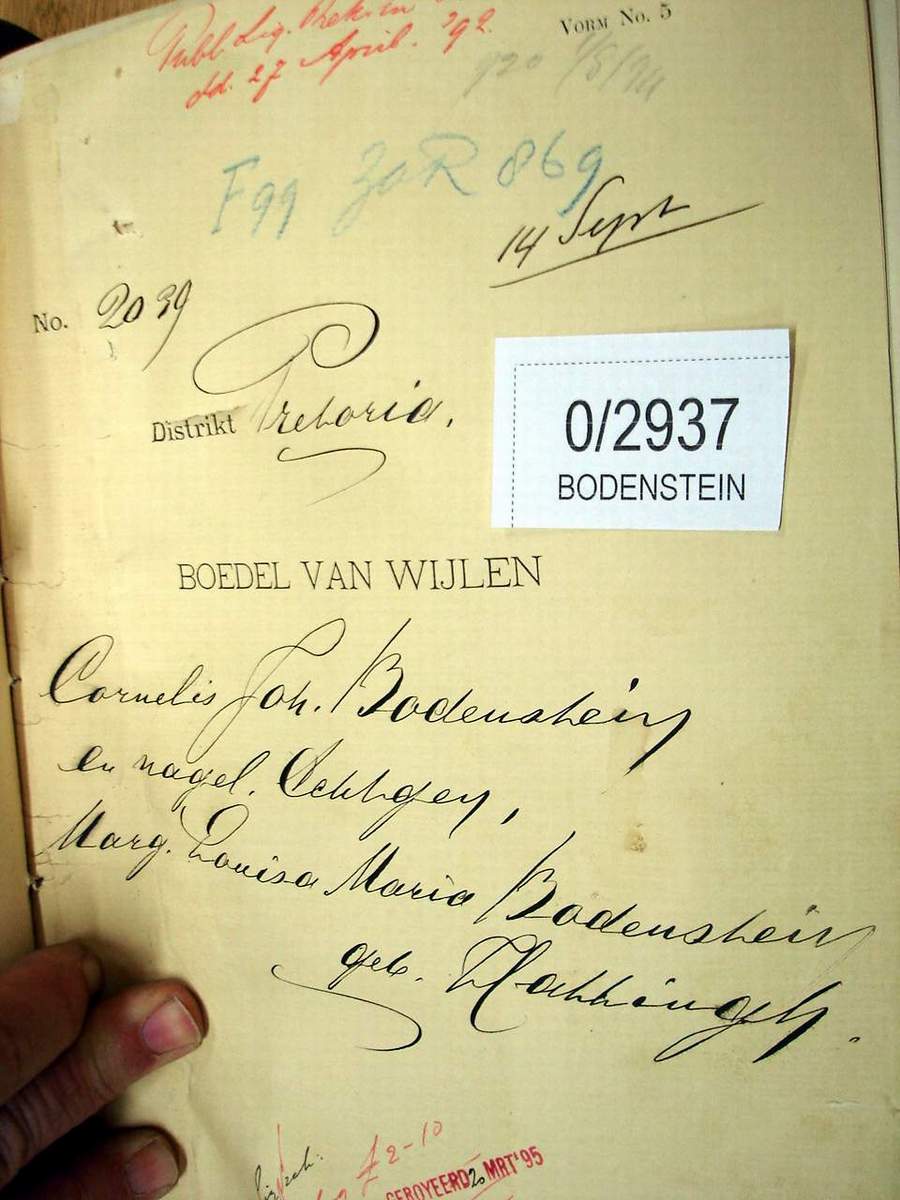 Publ. Liq. Rek. in
VORM No. 5
dd. 27 April. '92.
920 1/8/94
F 99 ZAR 869
14 Sept
No. 2039
Distrikt Pretoria.
0/2937
BODENSTEIN
BOEDEL VAN WIJLEN
Cornelis Joh. Bodenstein
en nagel. Echtgen,
Marg. Louisa Maria Bodenstein
geb. Hattingh.
£2-10
GEROYEERD 20 MRT '95